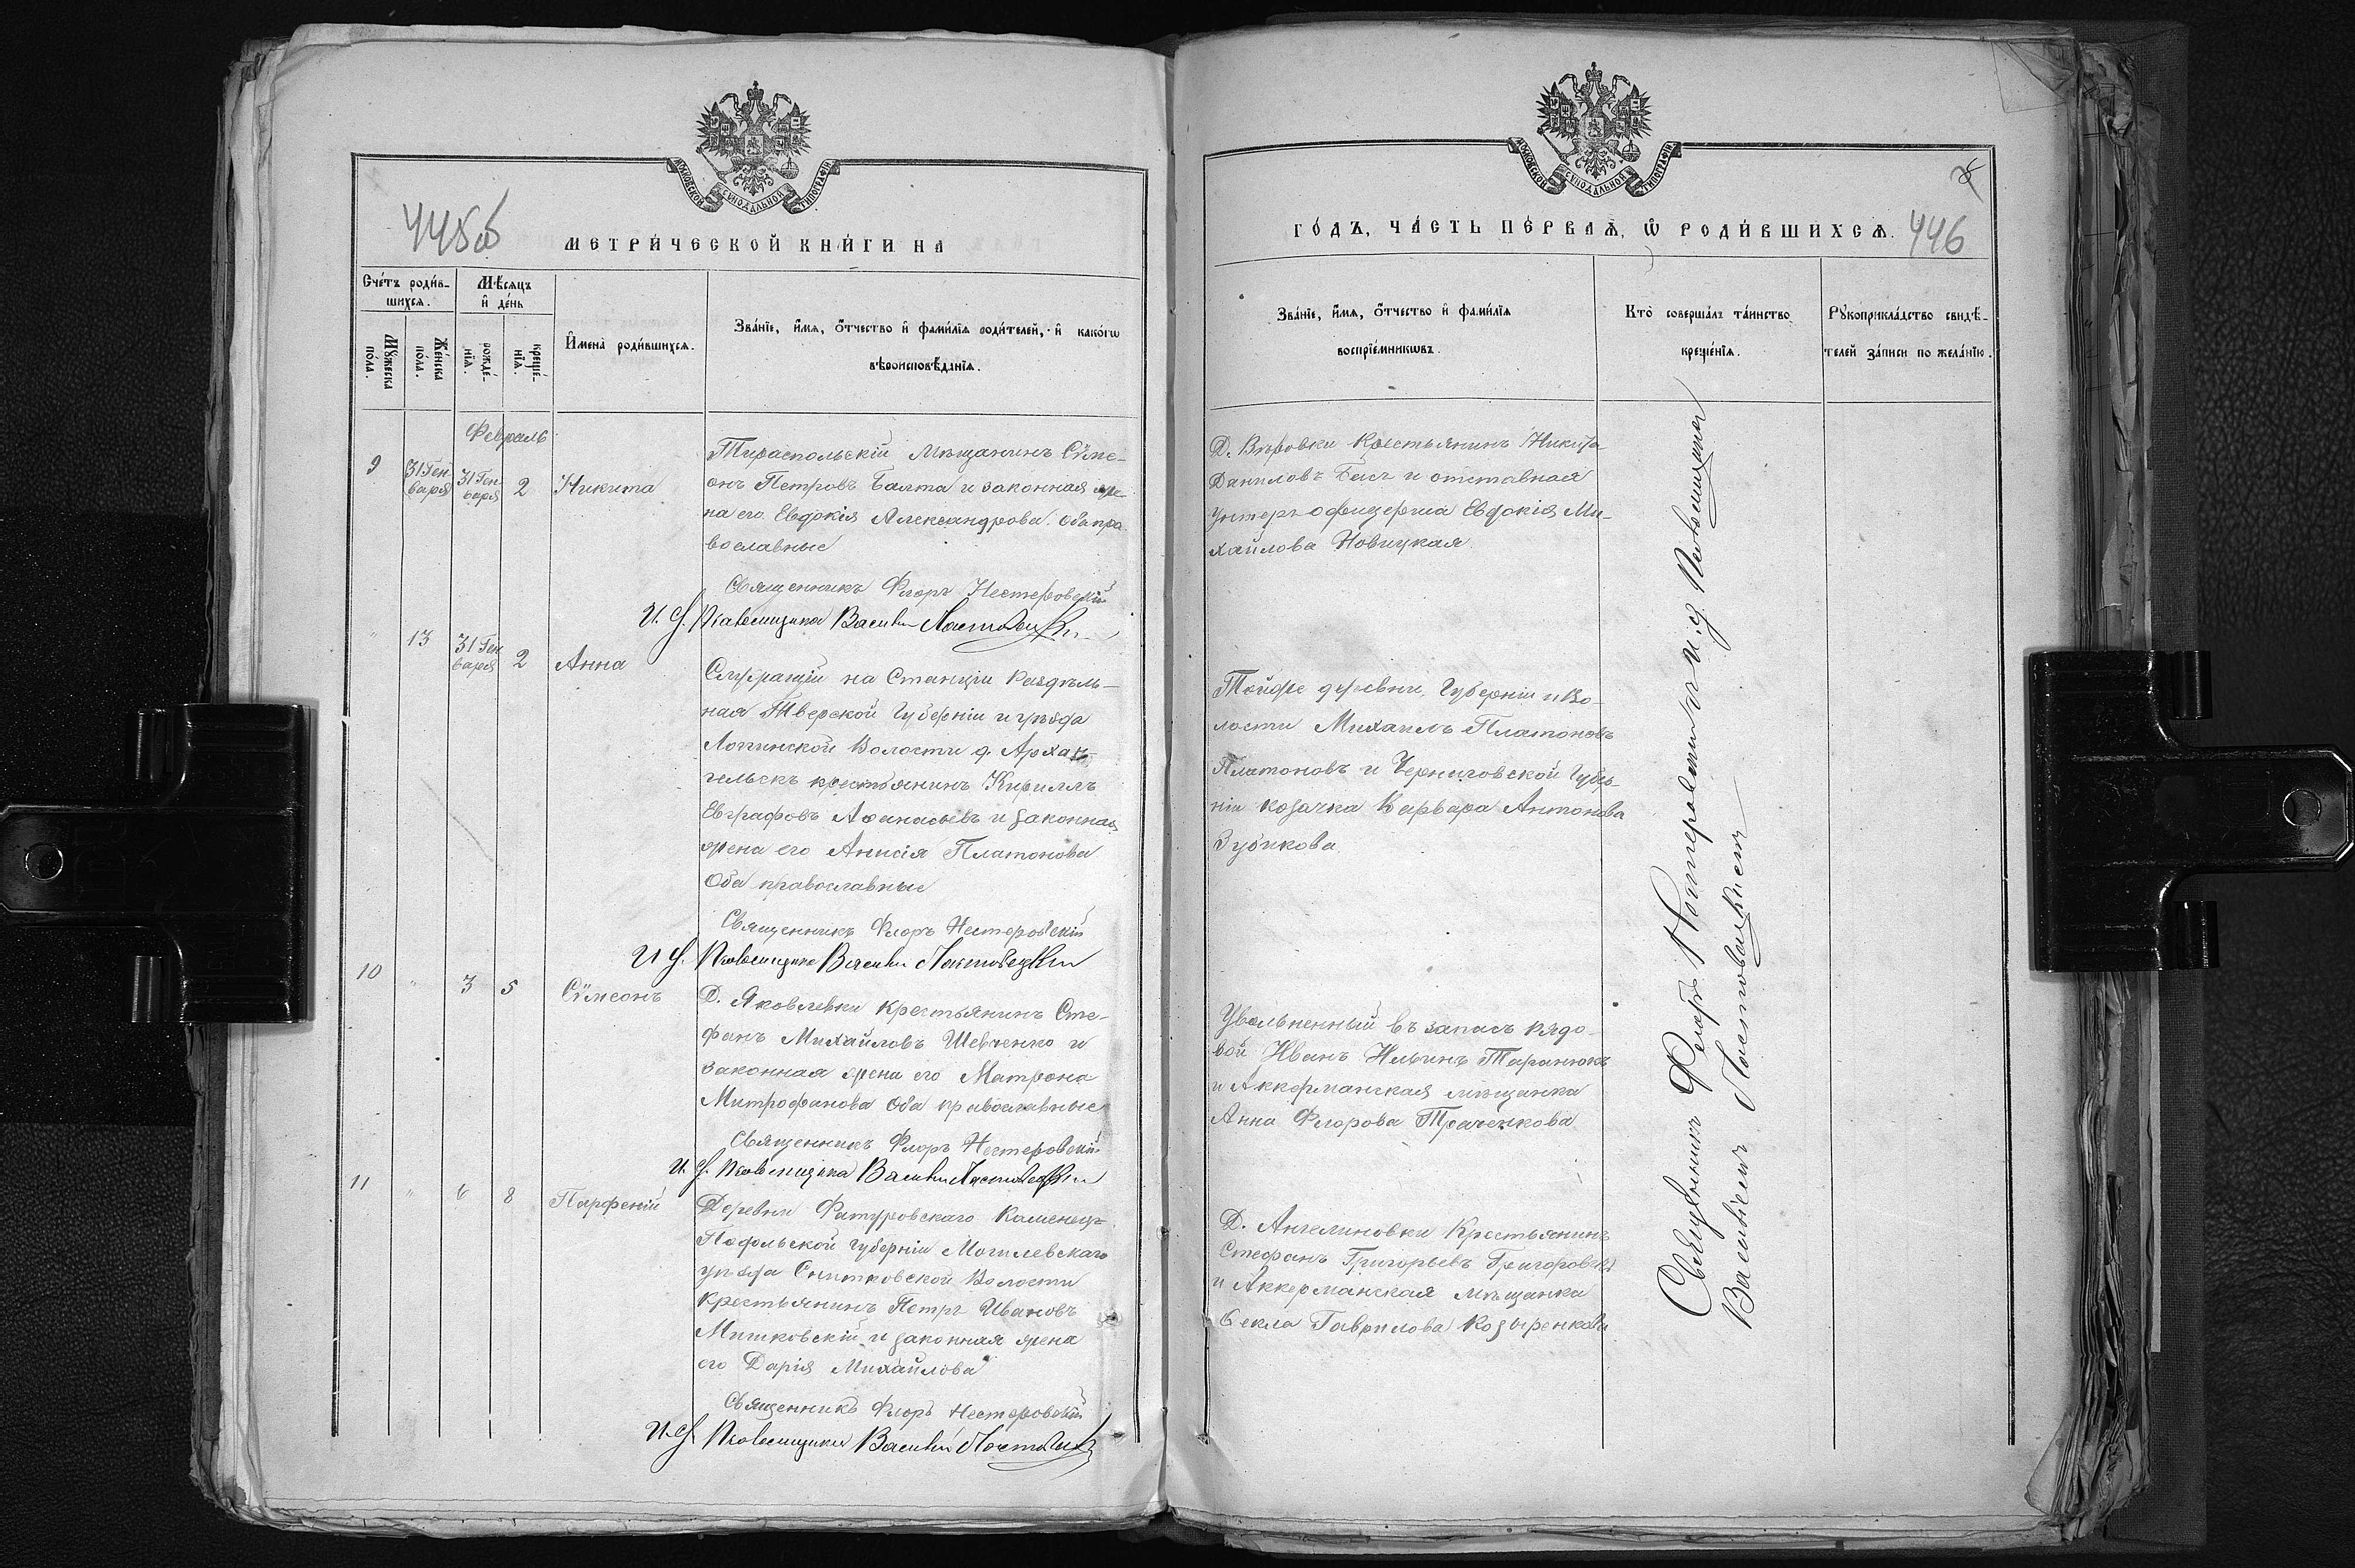 МОСКОВСКОЙ СѴНОДАЛЬНОЙ ТИПОГРАФІИ
445об
МЕТРИ́ЧЕСКОЙ КНИ́ГИ НА
Сче́тъ роди́в-
шихсѧ.
Мѣ́сяцъ
и҆ де́нь
Мꙋ́жеска
пола.
Же́нска
по́ла.
рожде́-
нїѧ.
креще́-
нїѧ.
И҆мена̀ роди́вшихсѧ.
Зва́нїе, и҆́мѧ, ѻ҆́тчество и҆ фами́лїѧ роди́телей, и҆ како́гѡ
вѣроисповѣ́данїѧ.
Февраль
9 31 Ген-
варя 31 Ген-
варя 2 Никита
Тираспольскій Мѣщанинъ Сѵме-
онъ Петровъ Балта и законная же-
на его Евдокія Александрова. Оба пра-
вославные
Священникъ Флоръ Нестеровскій
И. д. Псаломщика Василій
" 13 31 Ген-
варя 2 Анна
Служащій на Станціи Раздѣль-
ная Тверской Губерніи и уѣзда
Волости д. Архан-
гельскъ крестьянинъ Кириллъ
Евграфовъ Аѳанасьевъ и законная
жена его Анисія Платонова
Оба православные
Священникъ Флоръ Нестеровскій
И д. Псаломщика Василій
10 " 3 5 Сѵмеонъ
Д. Яковлевки Крестьянинъ Сте-
фанъ Михайловъ Шевченко и
законная жена его Матрона
Митрофанова Оба православные
Священникъ Флоръ Нестеровскій
И. д. Псаломщика Василій
11 " 6 8 Парфеній
Деревни Каменец-
Подольской Губерніи Могилевскаго
уѣзда Снитковской Волости
крестьянинъ Петръ Ивановъ
Мишковскій и законная жена
его Дарія Михайлова
Священникъ Флоръ Нестеровскій
И. д. Псаломщика Василій
МОСКОВСКОЙ СѴНОДАЛЬНОЙ ТИПОГРАФІИ
446
ГО́ДЪ, ЧА́СТЬ ПЕ́РВАѦ, Ѡ҆ РОДИ́ВШИХСѦ.
Зва́нїе, и҆́мѧ, ѻ҆́тчество и҆ фами́лїѧ
воспрїе́мникѡвъ.
Кто̀ соверша́лъ та́инство
креще́нїѧ.
Рꙋкоприкла́дство свидѣ́-
телей за́писи по жела́нїю.
Д. Вировки Крестьянинъ Никита
Даниловъ и отставная
унтеръ офицерша Евдокія Ми-
хайлова Новицкая.
Тойже деревни, Губерніи и Во-
лости Михаилъ Платоновъ
Платоновъ и Черниговской Губер-
ніи козачка Варвара Антонова
Зубикова
Увольненный въ запасъ рядо-
вой Иванъ Ильинъ Таранюкъ
и Аккерманская мѣщанка
Анна Флорова Траченкова
Д. Ангелиновки Крестьянинъ
Стефанъ Григорьевъ
и Аккерманская мѣщанка
Ѳекла Гаврилова Козыренкова
Священникъ Флоръ Нестеровскій и и. д. Псаломщика
Василій